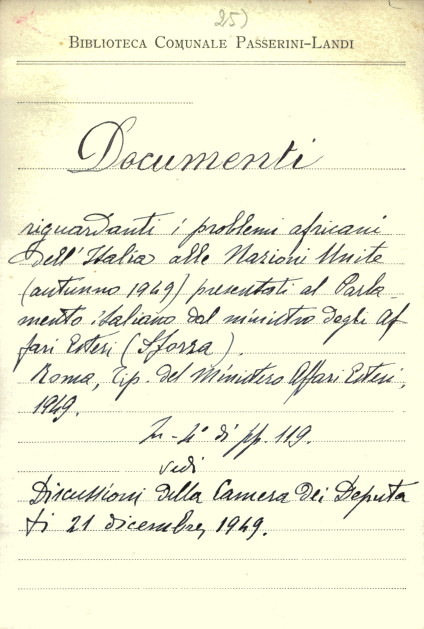 25)
BIBLIOTECA COMUNALE PASSERINI-LANDI
Documenti
riguardanti i problemi africani
dell'Italia alle Nazioni Unite
(autunno 1949) presentati al Parla-
mento italiano dal ministro degli Af
fari Esteri (Sforza).
Roma, Tip. del Ministero Affari Esteri,
1949.
In-4° di pp. 119.
vedi
Discussioni della Camera dei Deputa
ti 21 dicembre, 1949.